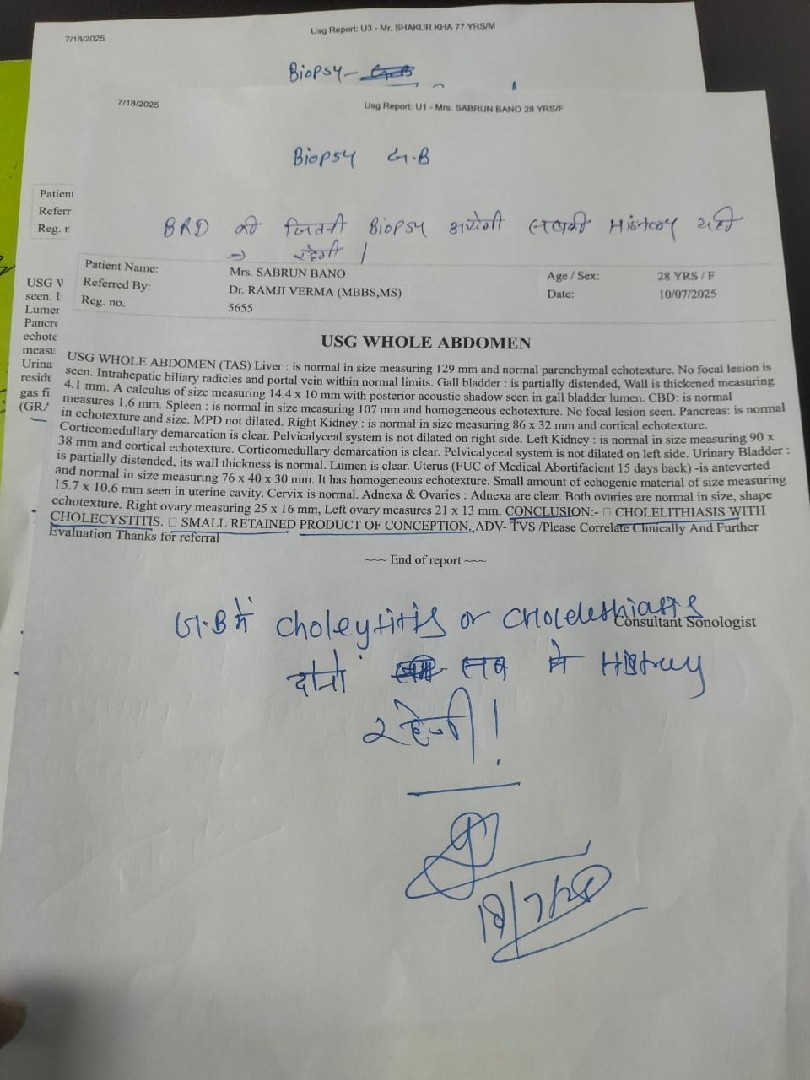 7/18/2025
Usg Report: U3 - Mr. SHAKUR KHA 77 YRS/M
Biopsy-
7/18/2025
Usg Report: U1 - Mrs. SABRUN BANO 28 YRS/F
Biopsy G.B
BRD की जितनी Biopsy आयेगी सबकी History यही
रहेगी ।
Patient
Referr
Reg. r
Patient Name: Mrs. SABRUN BANO Age / Sex: 28 YRS / F
Referred By: Dr. RAMJI VERMA (MBBS,MS) Date: 10/07/2025
Reg. no. 5655
USG W
seen. I
Lumer
Pancre
echote
measu
Urina
residu
gas fi
(GRA
USG WHOLE ABDOMEN
USG WHOLE ABDOMEN (TAS) Liver : is normal in size measuring 129 mm and normal parenchymal echotexture. No focal lesion is
seen. Intrahepatic biliary radicles and portal vein within normal limits. Gall bladder : is partially distended, Wall is thickened measuring
4.1 mm. A calculus of size measuring 14.4 x 10 mm with posterior acoustic shadow seen in gall bladder lumen. CBD: is normal
measures 1.6 mm. Spleen : is normal in size measuring 107 mm and homogeneous echotexture. No focal lesion seen. Pancreas: is normal
in echotexture and size. MPD not dilated. Right Kidney : is normal in size measuring 86 x 32 mm and cortical echotexture.
Corticomedullary demarcation is clear. Pelvicalyceal system is not dilated on right side. Left Kidney : is normal in size measuring 90 x
38 mm and cortical echotexture. Corticomedullary demarcation is clear. Pelvicalyceal system is not dilated on left side. Urinary Bladder :
is partially distended, its wall thickness is normal. Lumen is clear. Uterus (FUC of Medical Abortifacient 15 days back) -is anteverted
and normal in size measuring 76 x 40 x 30 mm. It has homogeneous echotexture. Small amount of echogenic material of size measuring
15.7 x 10.6 mm seen in uterine cavity. Cervix is normal. Adnexa & Ovaries : Adnexa are clear. Both ovaries are normal in size, shape
echotexture. Right ovary measuring 25 x 16 mm, Left ovary measures 21 x 13 mm. CONCLUSION:- □ CHOLELITHIASIS WITH
CHOLECYSTITIS. □ SMALL RETAINED PRODUCT OF CONCEPTION. ADV- TVS /Please Correlate Clinically And Further
Evaluation Thanks for referral
~~~ End of report ~~~
Consultant Sonologist
G.B में choleytitis or cholelethiasis
दोनो सब मे History
रहेगी!